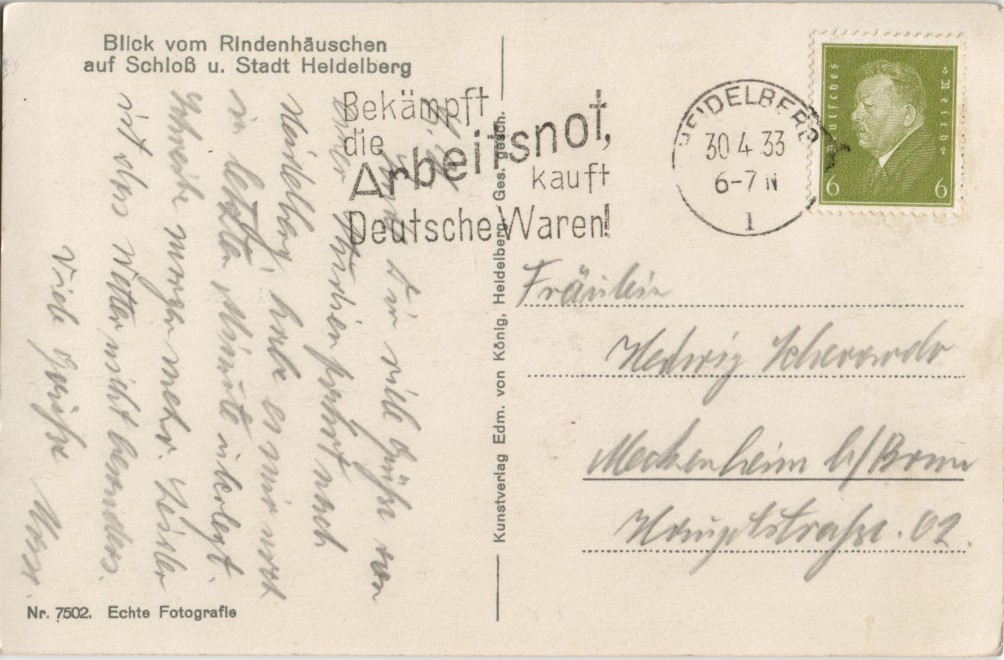 Blick vom Rindenhäuschen
auf Schloß u. Stadt Heidelberg
Bekämpft
die
Arbeitsnot,
kauft
Deutsche Waren!
HEIDELBERG
30.4.33
6-7 N
1
Deutsches Reich
6 6
Dir viele Grüße von
einer nach
Heidelberg, habe es mir erst
in letzter Minute überlegt.
Schreibe morgen mehr. Leider
ist das Wetter nicht besonders.
Viele Grüße
Kunstverlag Edm. von König, Heidelberg. Ges. gesch.
Fräulein
Hedwig
Meckenheim b/Bonn
Hauptstraße. 62.
Nr. 7502. Echte Fotografie